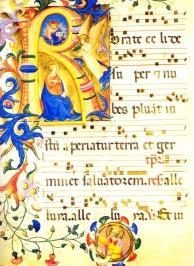 Rorate celi de
su per et nu
bes pluãt iu
stũ aperiatur terra et ger
minet saluatorem. alle
luya. alle lu ya.